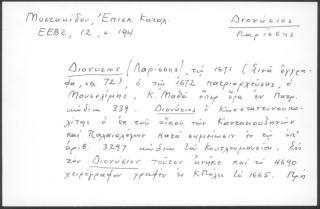 Μυστακίδου, Επισκ. Καταλ.
ΕΕΒΣ, 12, σ 194
Διονύσιος
Λαρίσσης
Διονύσιος [Λαρίσσης], τῷ 1671 (
72), ὁ τῷ 1672 πατριαρχεύσας, ὁ
Μουσελίμης, Κ. Μαθᾶ ὅπερ ὅρα ἐν Πατρ.
κώδικι 339. Διονύσιος ὁ Κωνσταντινουπό-
λίτης ὁ ἐκ τοῦ οἴκου τῶν Καντακουζηνῶν
καὶ Παλαιολόγων κατὰ σημείωσιν ἐν τῷ ὑπ'
ἀριθ. 3297 κώδικι τῶ Κουτλουμουσίου. Εἰς
τὸν Διονύσιον τοῦτον ἀνῆκε καὶ τὸ 4640
χειρόγραφον γραφὲν ἐν Κ/Πόλει τῷ 1665. Πρὸ